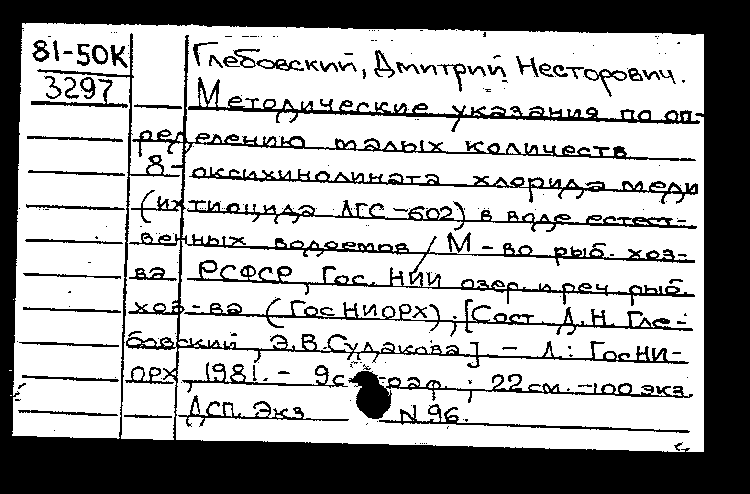 81-50К
3297
Глебовский, Дмитрий Несторович.
Методические указания по оп-
ределению малых количеств
8-оксихинолината хлорида меди
(ихтиоцида ЛГС-602) в воде естест-
венных водоемов / М-во рыб. хоз-
ва РСФСР, Гос. НИИ озер. и реч. рыб.
хоз-ва (ГосНИОРХ); [Сост. Д.Н. Гле-
бовский, Э.В. Судакова] - Л.: ГосНИ-
ОРХ, 1981. - 9с граф.; 22 см. - 100 экз.
ДСП. Экз N 96.